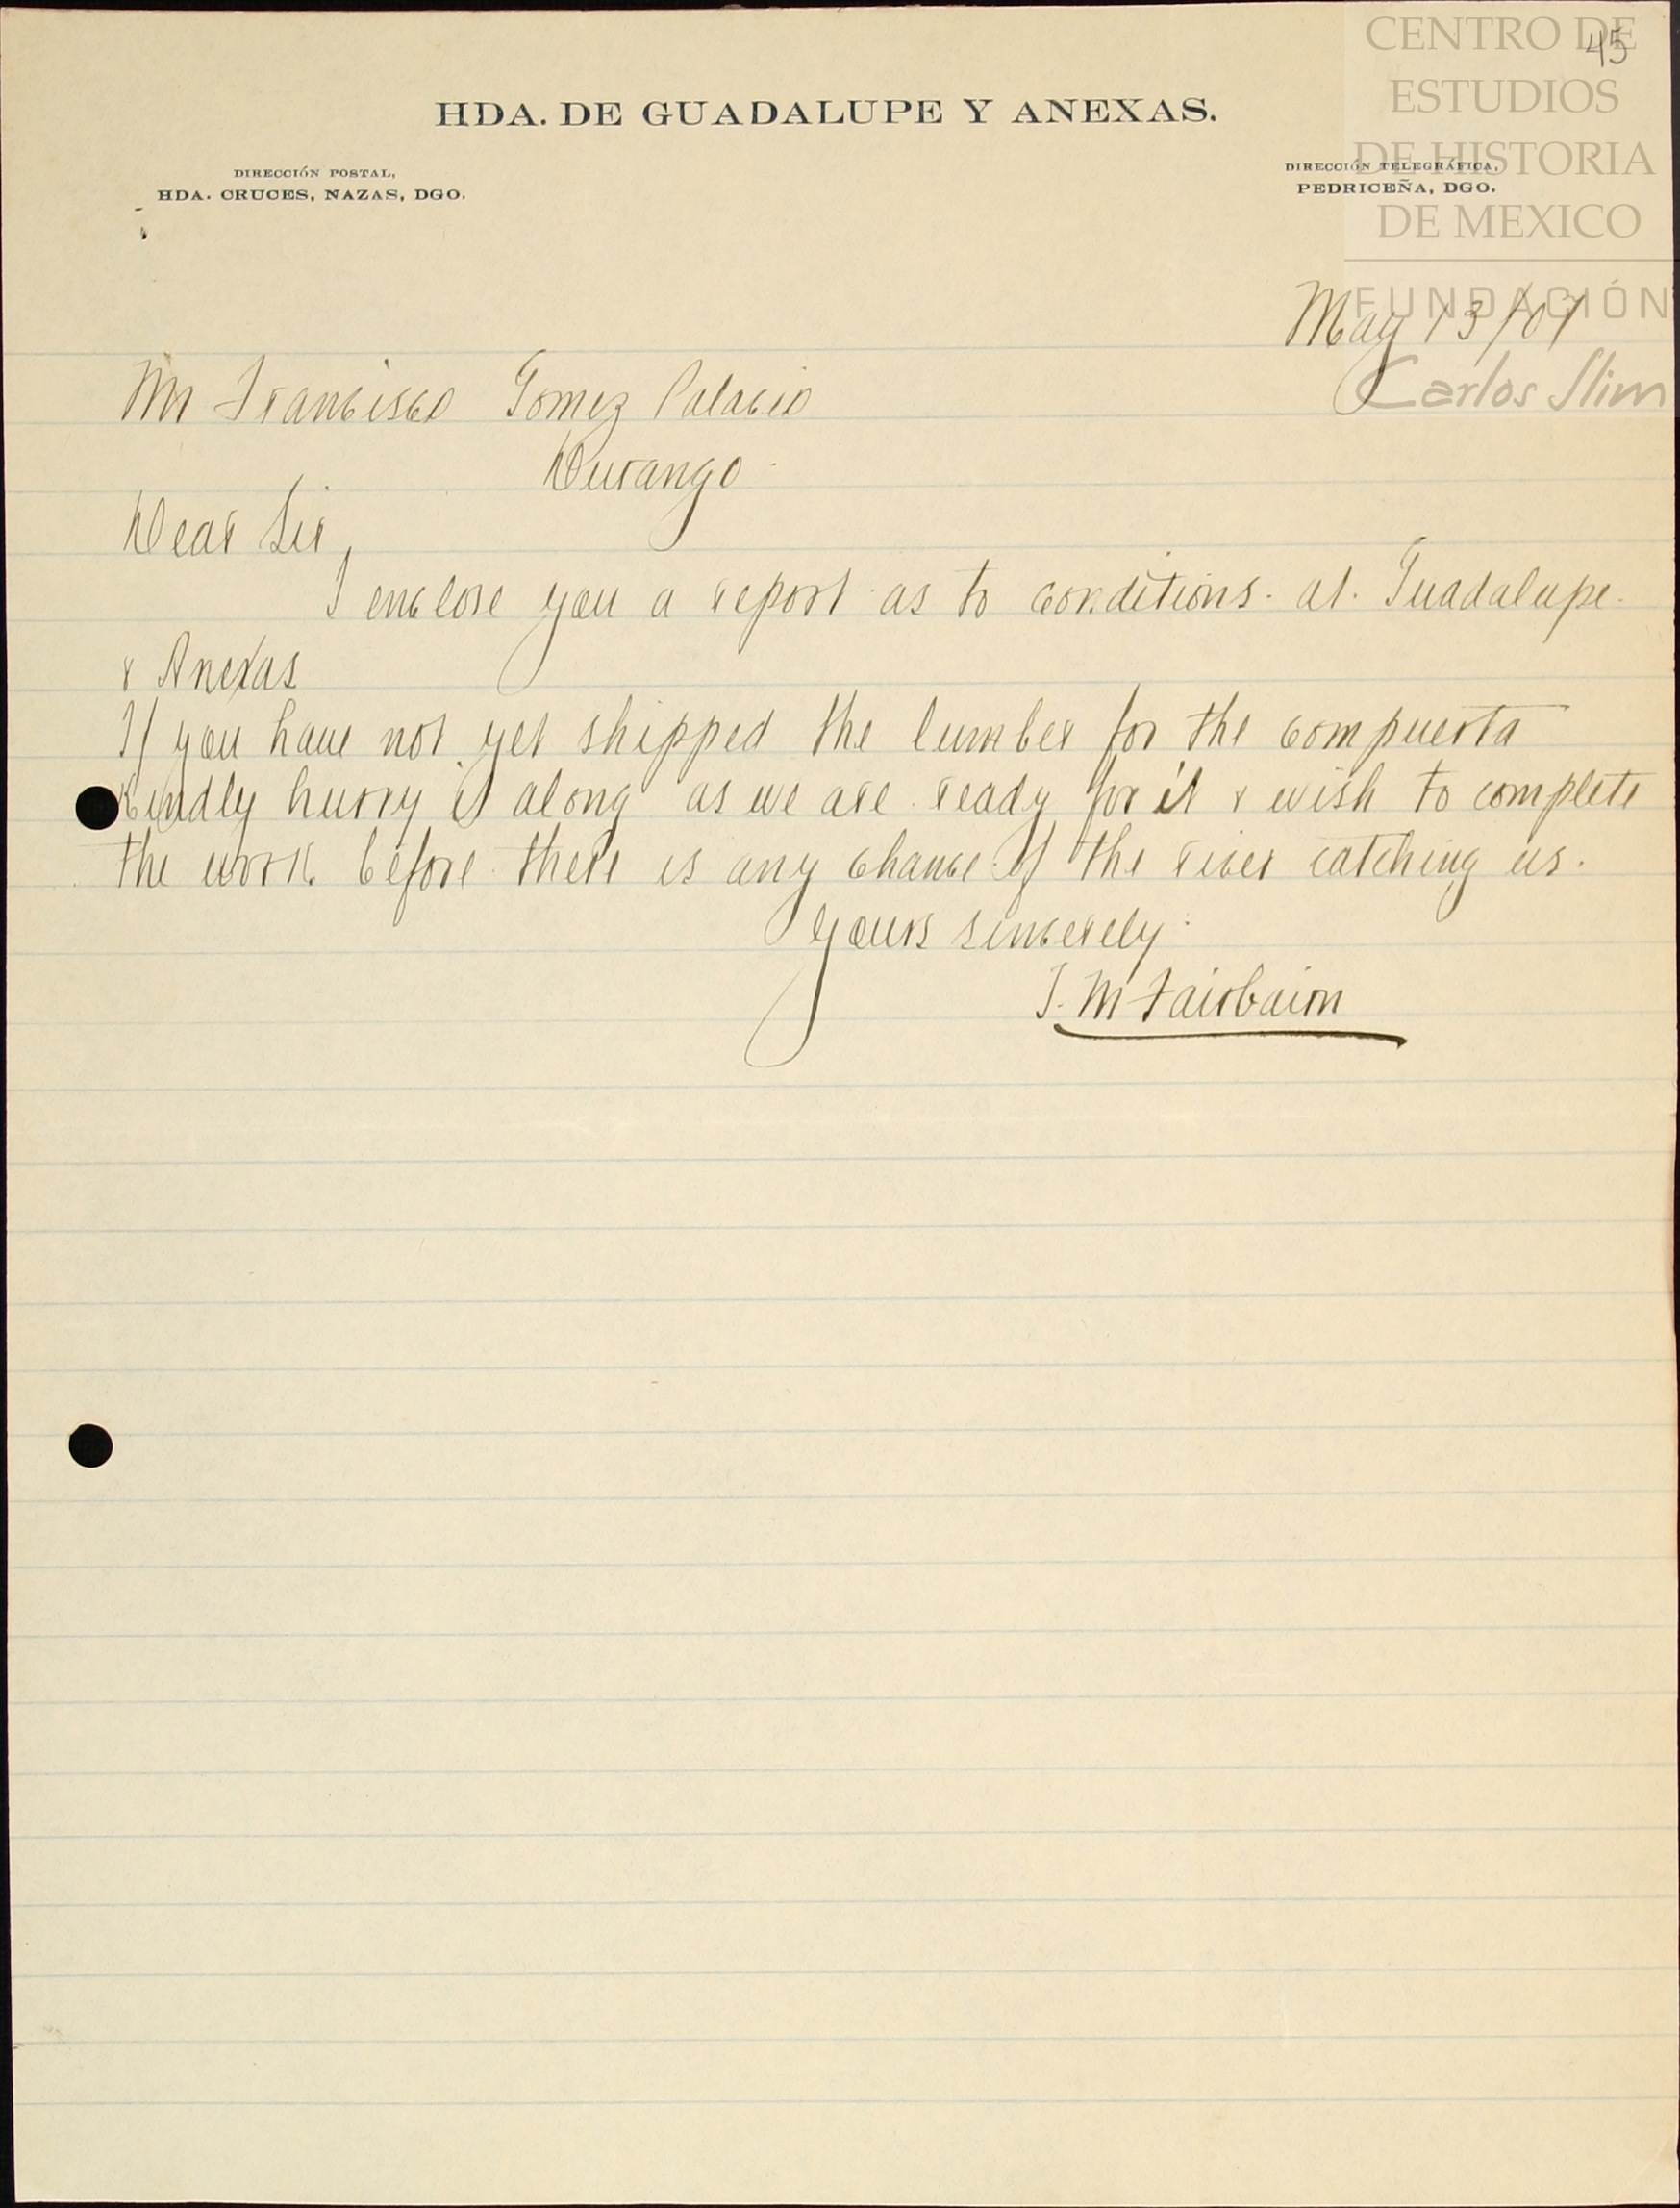 45
HDA. DE GUADALUPE Y ANEXAS.
DIRECCIÓN POSTAL,
HDA. CRUCES, NAZAS, DGO.
DIRECCIÓN TELEGRÁFICA,
PEDRICEÑA, DGO.
CENTRO DE
ESTUDIOS
DE HISTORIA
DE MEXICO
FUNDACIÓN
Carlos Slim
May 13/07
Mr Francisco Gomez Palacio
Durango.
Dear Sir,
I enclose you a report as to conditions. at. Guadalupe.
& Anexas
If you have not yet shipped the lumber for the compuerta
kindly hurry it along as we are ready for it & wish to complete
the work before there is any chance of the river catching us.
Yours sincerely.
J. M Fairbairn